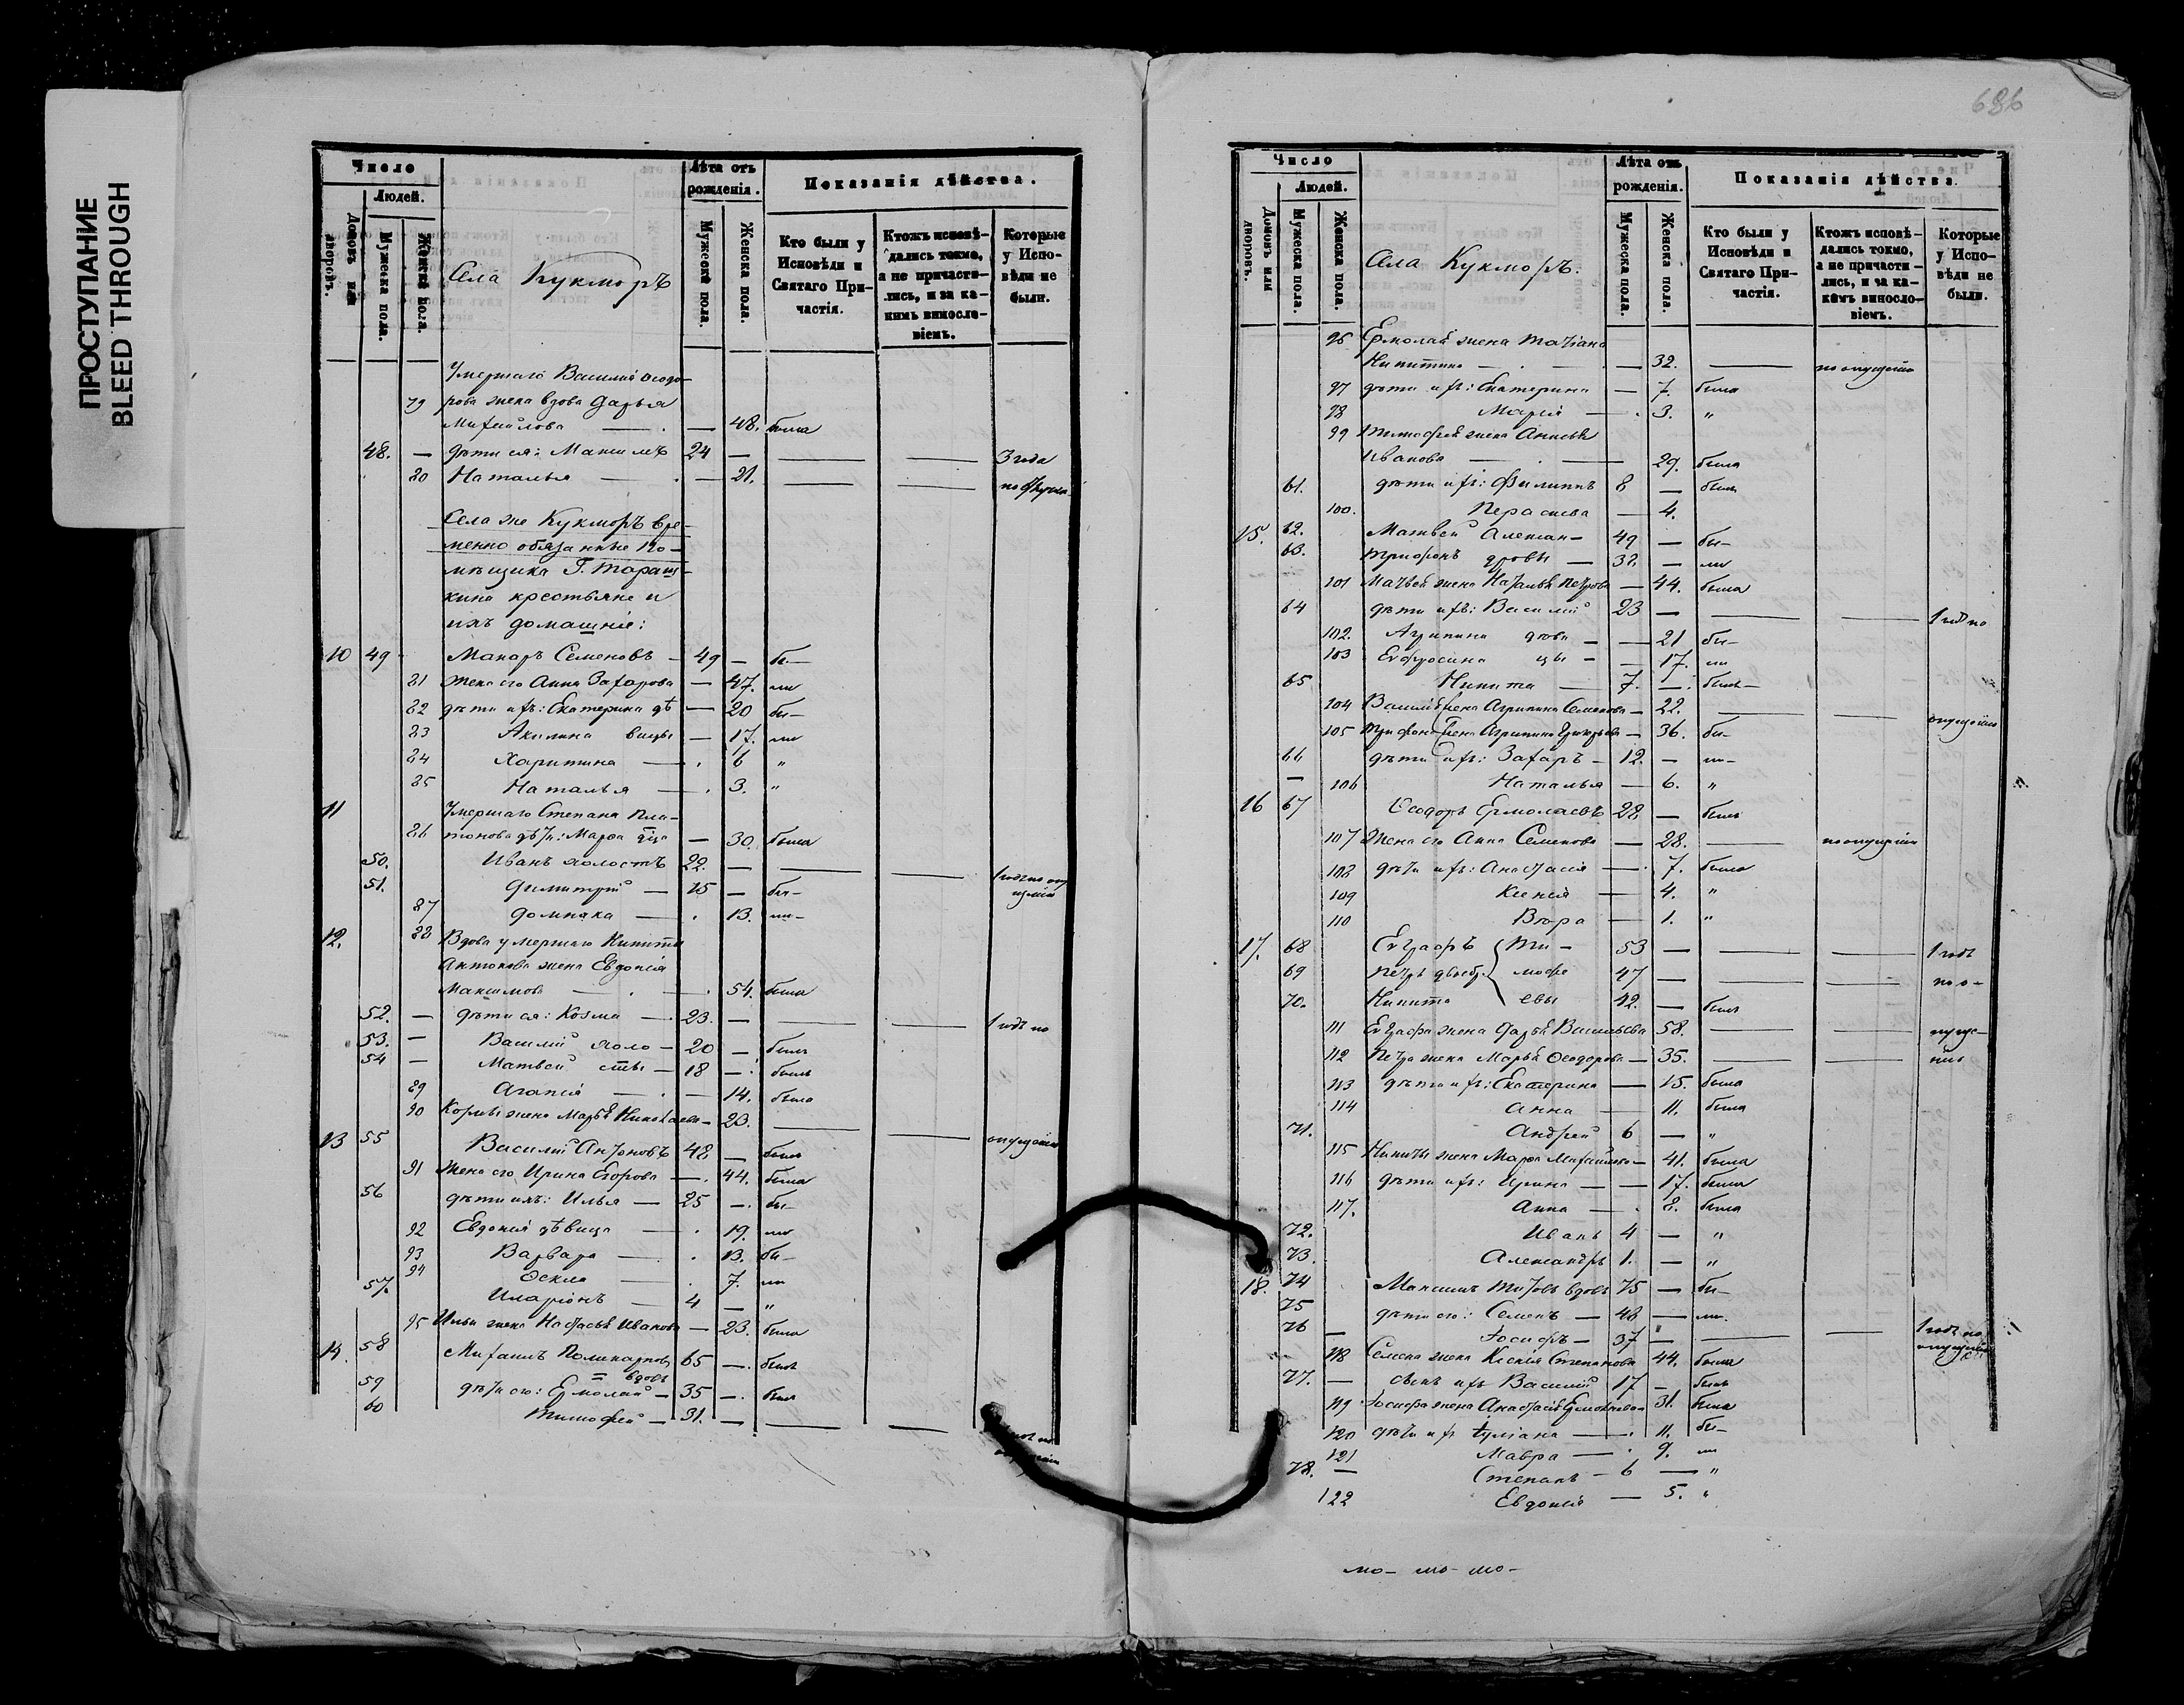 ПРОСТУПАНИЕ
BLEED THROUGH
Число
Людей.
Домовъ или дворовъ.
Мужеска пола.
Женска пола.
Села Кукморъ
Лѣта отъ рожденія.
Мужеска пола.
Женска пола.
Показанія дѣйства.
Кто были у Исповѣди и Святаго Причастія.
Ктожъ исповѣдались токмо, а не причастились, и за какимъ винословіемъ.
Которые у Исповѣди не были.
Умершаго Василія Ѳеодо-
79 рова жена вдова Дарья
Михайлова — — 48. была
48. — дѣти ея: Максимъ 24 — — — 3 года
80 Наталья — — 21. — —
Села же Кукморъ вре-
менно обязанные По-
мѣщика Г.
крестьяне и
ихъ домашніе:
10 49 Макаръ Семеновъ — 49 — бы-
81 жена его Анна Захарова — 47. ли
82 дѣти ихъ: Екатерина дѣ — 20 бы-
83 Акилина вицы — 17. ли
84 Харитина — 6 "
85 Наталья — 3. "
11 Умершаго Степана Пла-
86 тонова дѣти: Марѳа — 30. была
50. Иванъ холостъ 22. — — —
51. Димитрій — 15 — бы-
87 Домника — 13. ли-
12. 88 Вдова умершаго Никиты
Антонова жена Евдокія
Максимова — — 54. была
52. — дѣти ея: Козма — 23. — — — 1 годъ по
53. — Василій холо- 20 — былъ
54 — Матвей сты — 18 — былъ
89 Агапія — — 14. была
90 Козмы жена Марья Николаева — 23. — — опущенію
13 55 Василій Антоновъ 48 — былъ
91 Жена его Ирина Егорова — 44. была
56 дѣти ихъ: Илья — 25 — бы-
92 Евдокія дѣвица — 19. ли
93 Варвара — 13. бы-
94 Ѳекла — 7. ли
57. Иларіонъ — 4 — "
95 Ильи жена Настасья Иванова — 23. была
14. 58 Михаилъ Поликарповъ 65 — былъ
вдовъ
59 дѣти его: Ермолай — 35 — былъ
60 Тимофей — 31. — — —
686
Число
Людей.
Домовъ или дворовъ.
Мужеска пола.
Женска пола.
Села Кукморъ.
Лѣта отъ рожденія.
Мужеска пола.
Женска пола.
Показанія дѣйства.
Кто были у Исповѣди и Святаго Причастія.
Ктожъ исповѣдались токмо, а не причастились, и за какимъ винословіемъ.
Которые у Исповѣди не были.
96 Ермолая жена Татіана
Никитина — — 32. — по опущенію
97 дѣти ихъ: Екатерина — 7. была
98 Марія — 3. "
99 Тимофея жена Анисья
Иванова — — 29. была
61. дѣти ихъ: Филиппъ 8 — былъ
100. Параскева — 4.
15. 62. Матвей Алексан- 49 — бы-
63. Трифонъ дровы — 32. — ли
101 Матвея жена Наталья Петрова — 44. была
64 дѣти ихъ: Василій 23 — — — 1 годъ по
102. Агрипина дѣви — — 21 бы-
103 Евфросинья цы — — 17. ли
65 Никита — 7. — былъ
104 Василія жена Агрипина Семенова — 22. — — опущенію
105 Трифона жена Агрипина Григорьева — 36. бы-
66 дѣти ихъ: Захаръ — 12. — ли-
106 Наталья — 6. "
16 67 Ѳеодоръ Ермолаевъ 28 — былъ
107 Жена его Анна Семенова — 28. — по опущенію
108 дѣти ихъ: Анастасія — 7. была
109 Ксенія — 4. "
110 Вѣра — 1. "
17. 68 Евграфъ Ти- 53 — — — 1 годъ
69 Петръ мофе 47 — — — по о-
70. Никита евы 42. — былъ
111 Евграфа жена Дарья Васильева 58. — — пуще-
112 Петра жена Марья Ѳеодорова — 35. — — нію
113 дѣти ихъ: Екатерина — 15. была
114 Анна — 11. была
71. Андрей 6 — "
115 Никиты жена Марѳа Михайлова — 41. была
116 дѣти ихъ: Ирина — — 17. была
117. Анна — 8. была
72. Иванъ 4 — "
73. Александръ 1. — "
18. 74 Максимъ Титовъ вдовъ 75 — бы-
75 дѣти его: Семенъ — 48 — ли.
76 — Іосифъ — 37 — — — 1 годъ по опущенію
118 Семена жена Ксенія Степанова 44. была
77. — сынъ ихъ Василій 17 — былъ
119 Іосифа жена Анастасія 31. была
120 дѣти ихъ Іуліана — 11. бы-
121 Мавра — 9. ли
78. — Степанъ — 6 — "
122 Евдокія — 5. "